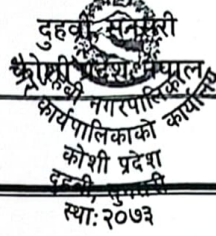 दुहवी, सुनसरी
कोशी प्रदेश, नेपाल
दुहवी नगरपालिका
नगर कार्यपालिकाको कार्यालय
कोशी प्रदेश
दुहवी, सुनसरी
स्था: २०७३